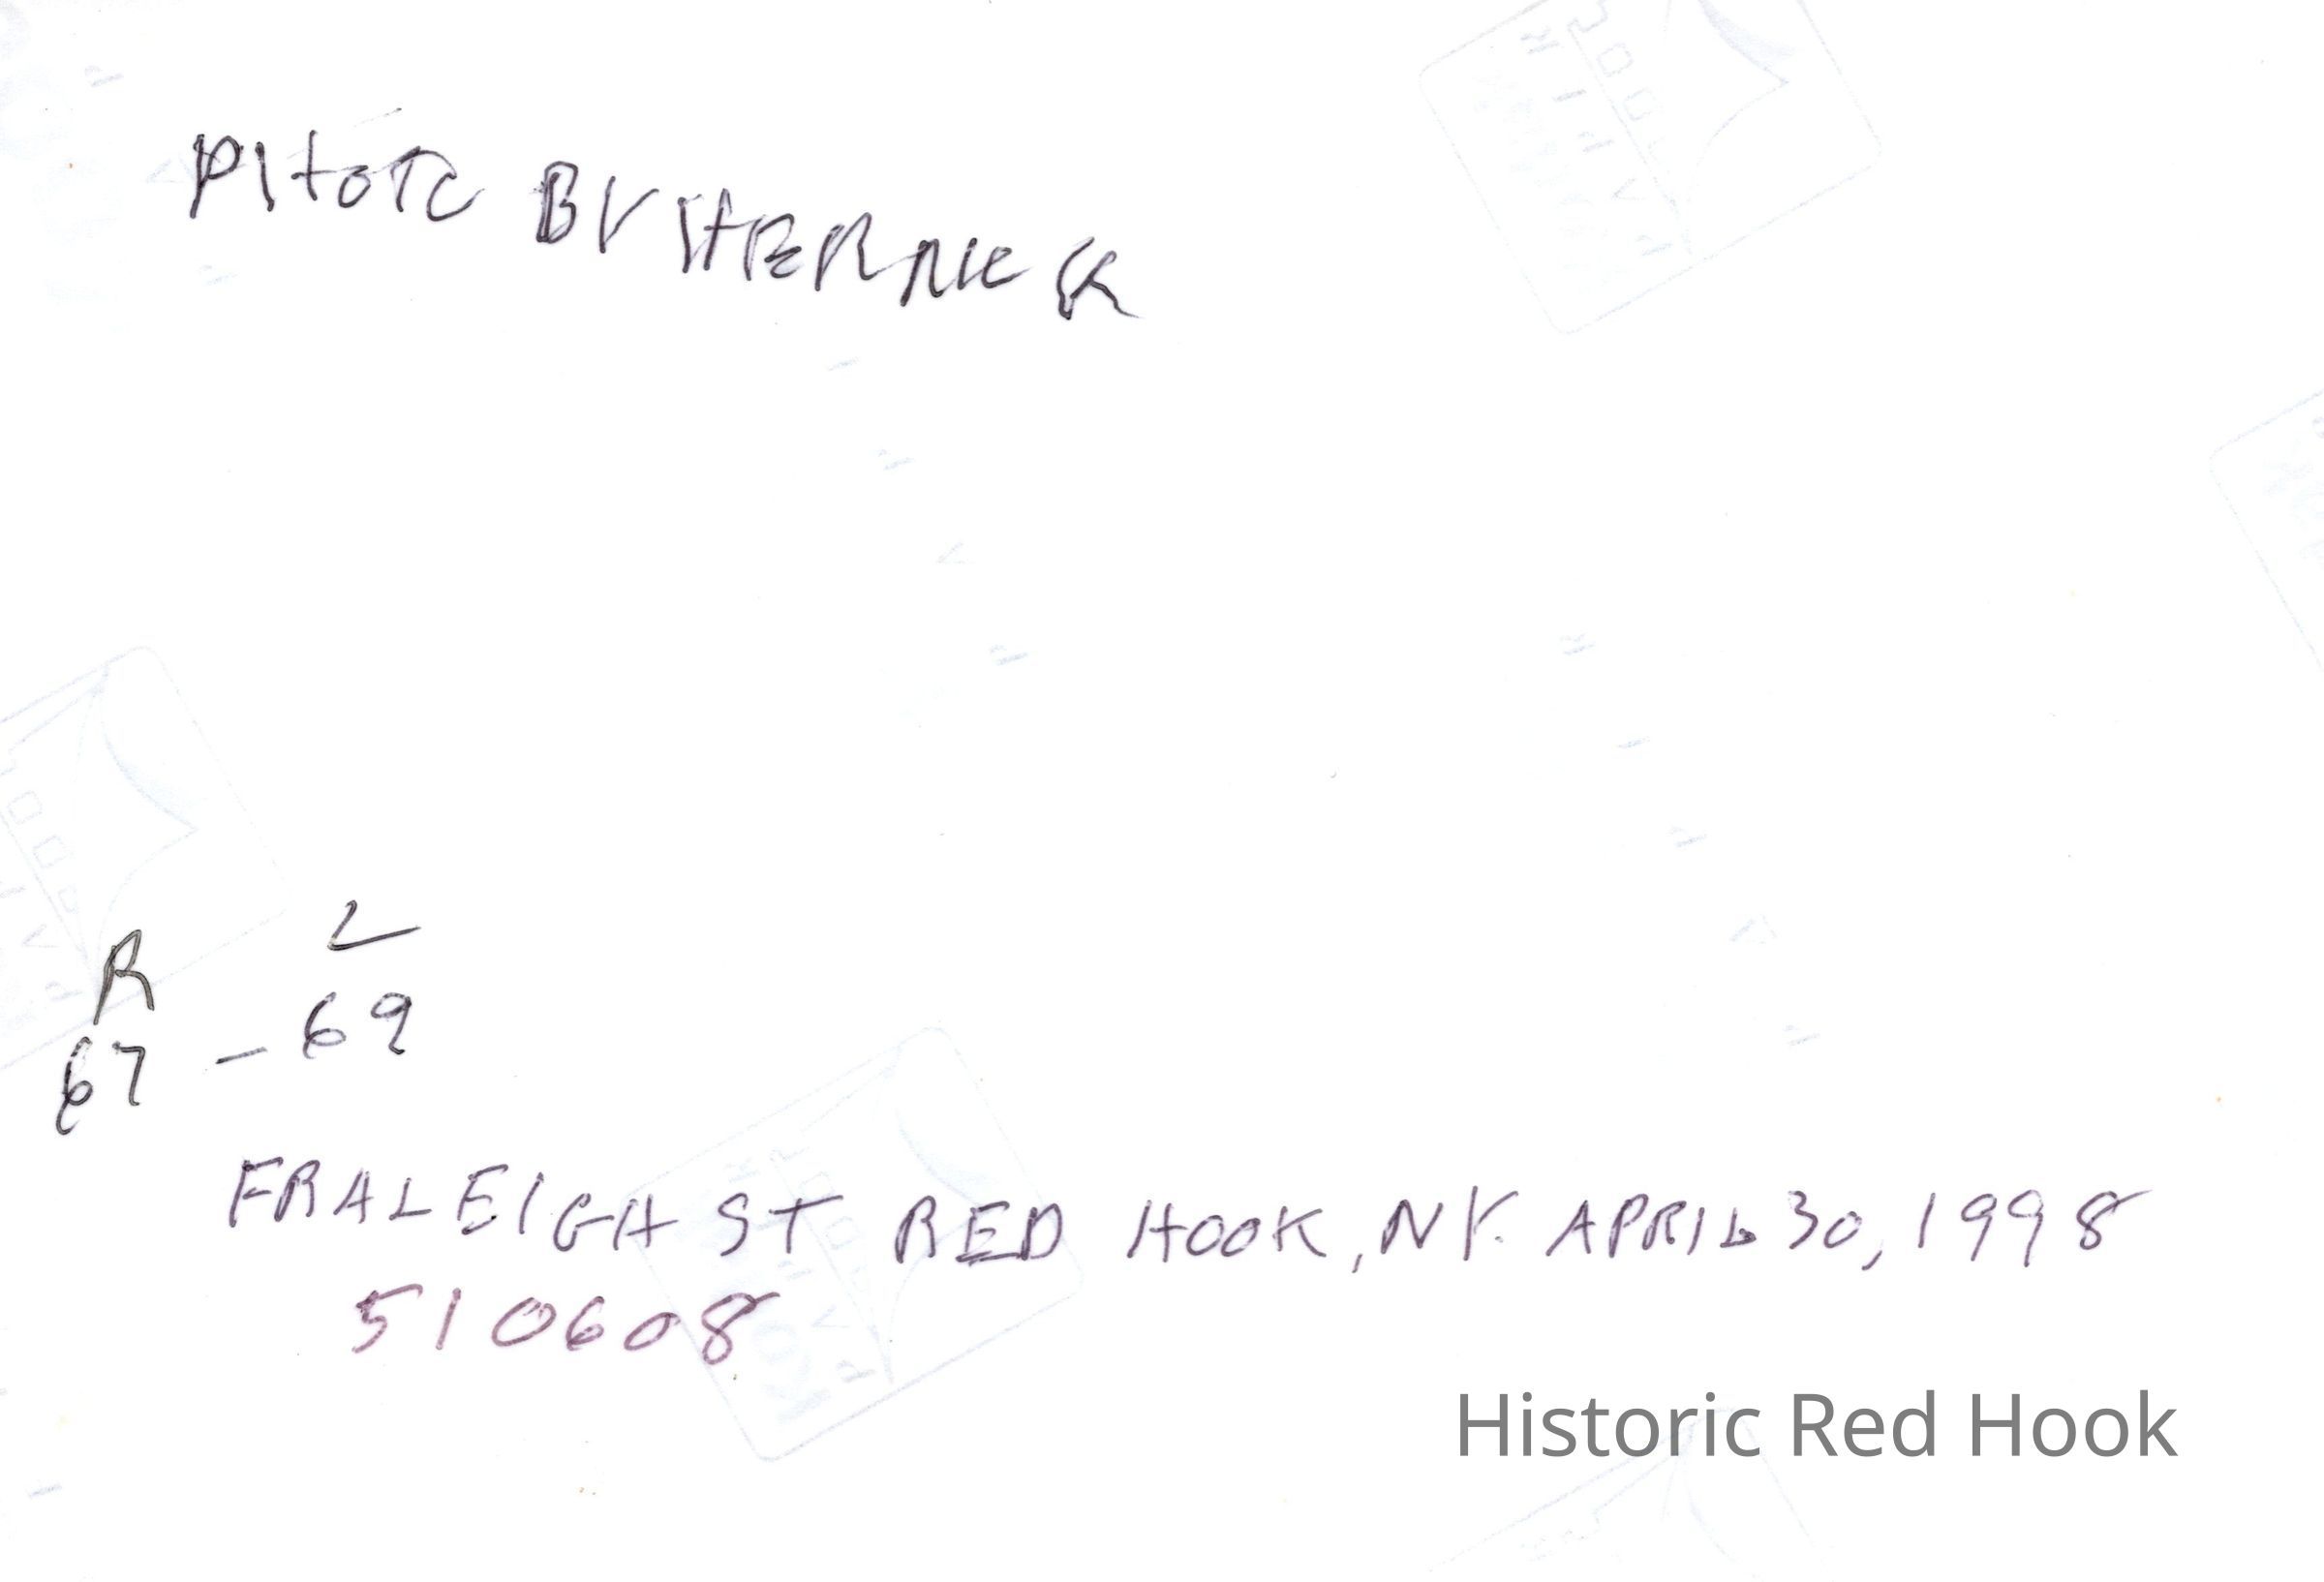 PHOTO BY
R L
67 - 69
FRALEIGH ST RED HOOK, NY. APRIL 30, 1998
510608
Historic Red Hook